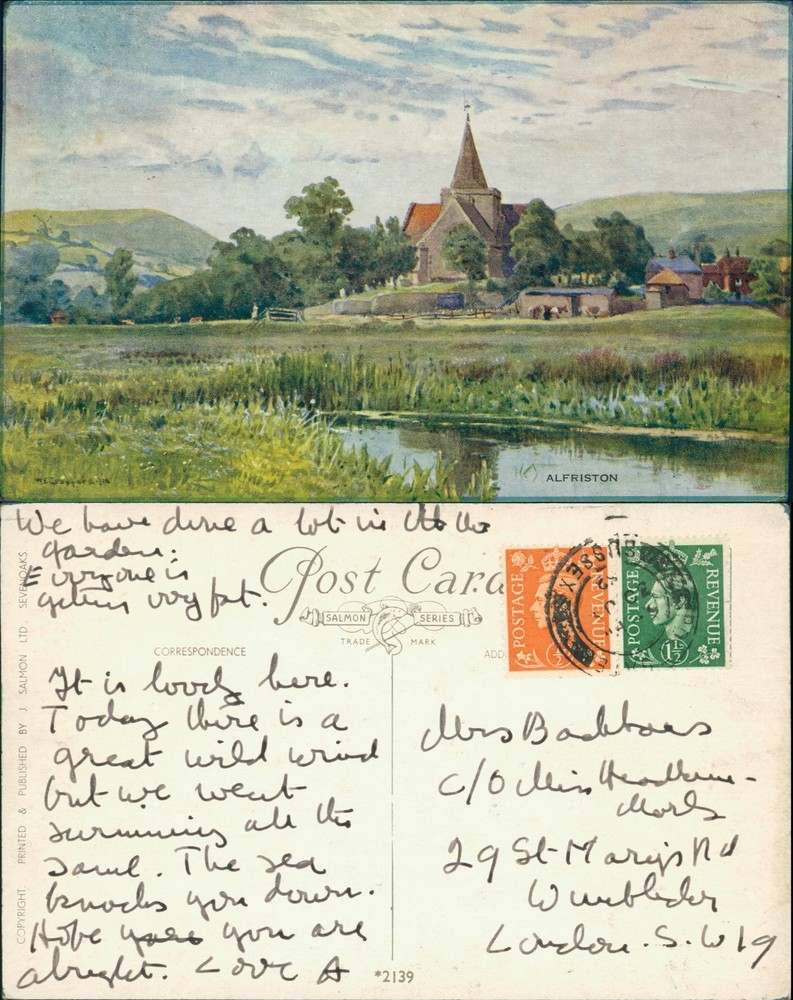 ALFRISTON
We have done a lot in the
garden.
Everyone is
getting very fat.
Post Card
SALMON SERIES
TRADE MARK
CORRESPONDENCE
ADD
POSTAGE REVENUE ½
POSTAGE REVENUE 1½
SUSSEX
COPYRIGHT PRINTED & PUBLISHED BY J. SALMON LTD SEVENOAKS
It is lovely here.
Today there is a
great wild wind
but we went
swimming all the
same. The sea
knocks you down.
Hope you are
alright. Love A
Mrs
C/O Miss
29 St. Mary's Rd
Wimbledon
London. S.W19
*2139